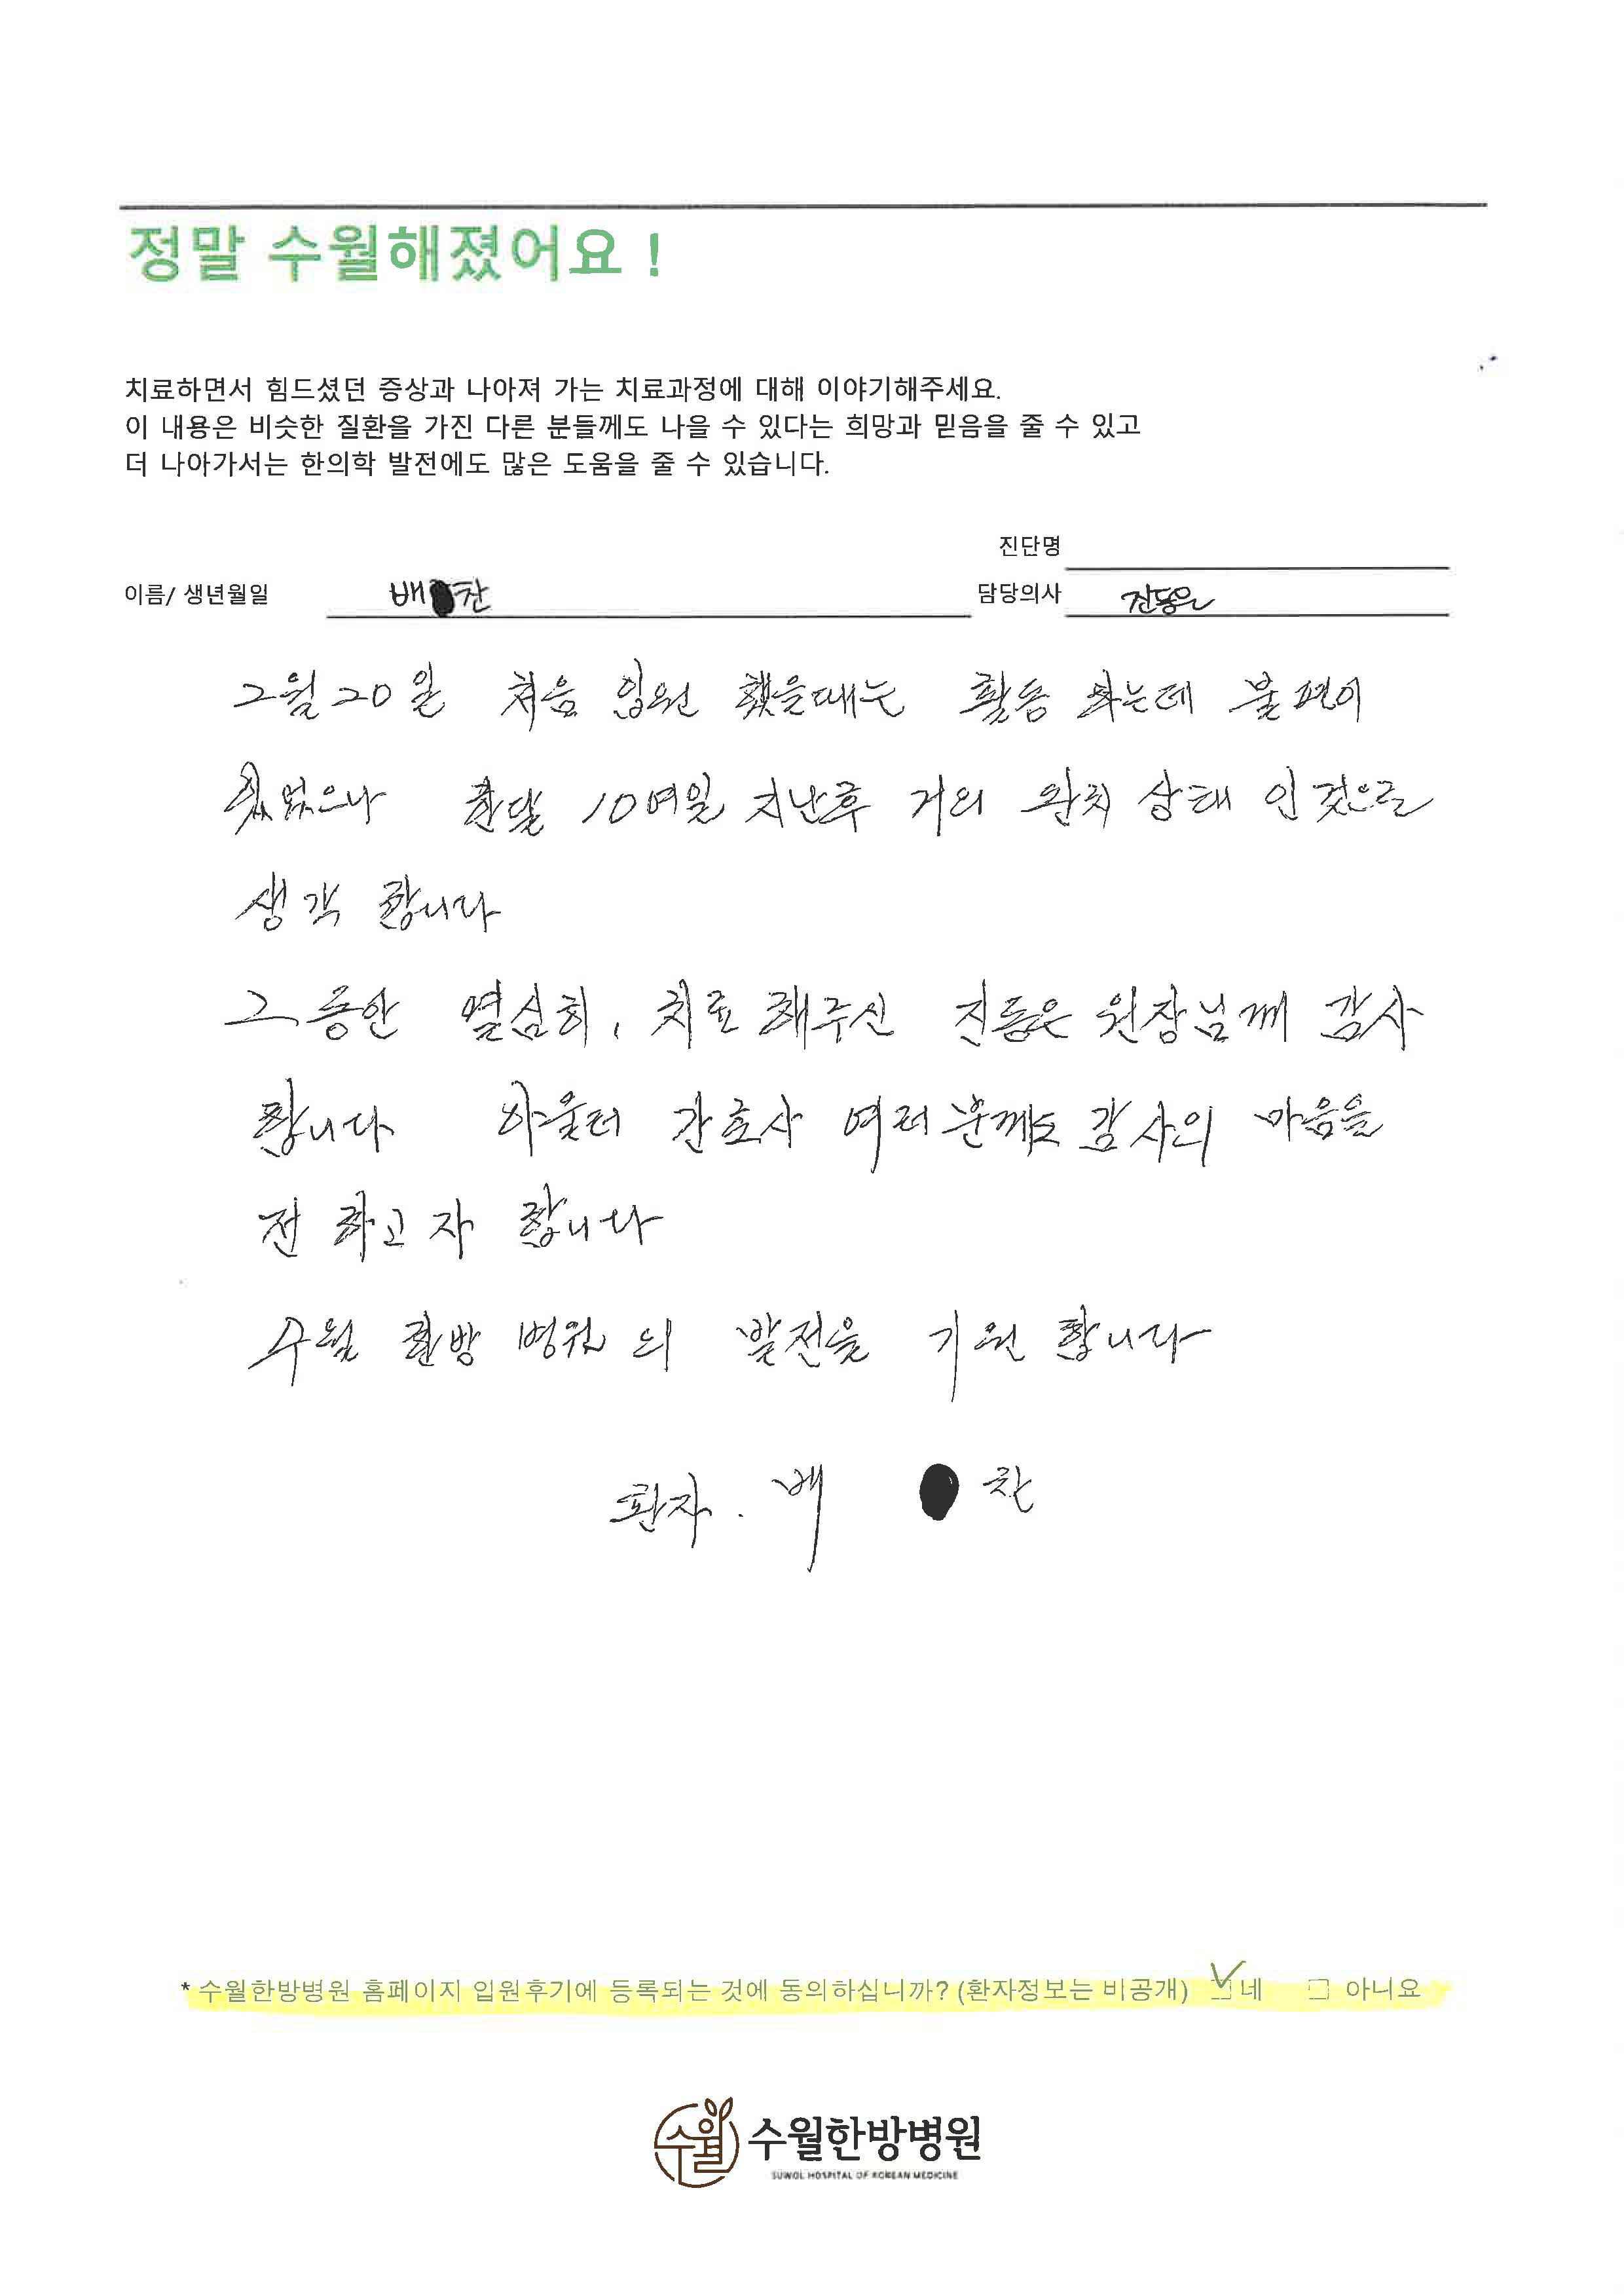 정말 수월해졌어요 !
치료하면서 힘드셨던 증상과 나아져 가는 치료과정에 대해 이야기해주세요.
이 내용은 비슷한 질환을 가진 다른 분들께도 나을 수 있다는 희망과 믿음을 줄 수 있고
더 나아가서는 한의학 발전에도 많은 도움을 줄 수 있습니다.
진단명
이름/ 생년월일 배 찬 담당의사 진동은
2월 20일 처음 입원 했을때는 활동 하는데 불편이
있었으나 한달 10여일 지난후 거의 완치 상태 인것으로
생각 합니다
그 동안 열심히, 치료 해주신 진동은 원장님께 감사
합니다 아울러 간호사 여러분께도 감사의 마음을
전 하고 자 합니다
수월 한방 병원 의 발전을 기원 합니다
환자. 배 찬
* 수월한방병원 홈페이지 입원후기에 등록되는 것에 동의하십니까? (환자정보는 비공개) ☑ 네 □ 아니요
수월 수월한방병원
SUWOL HOSPITAL OF KOREAN MEDICINE